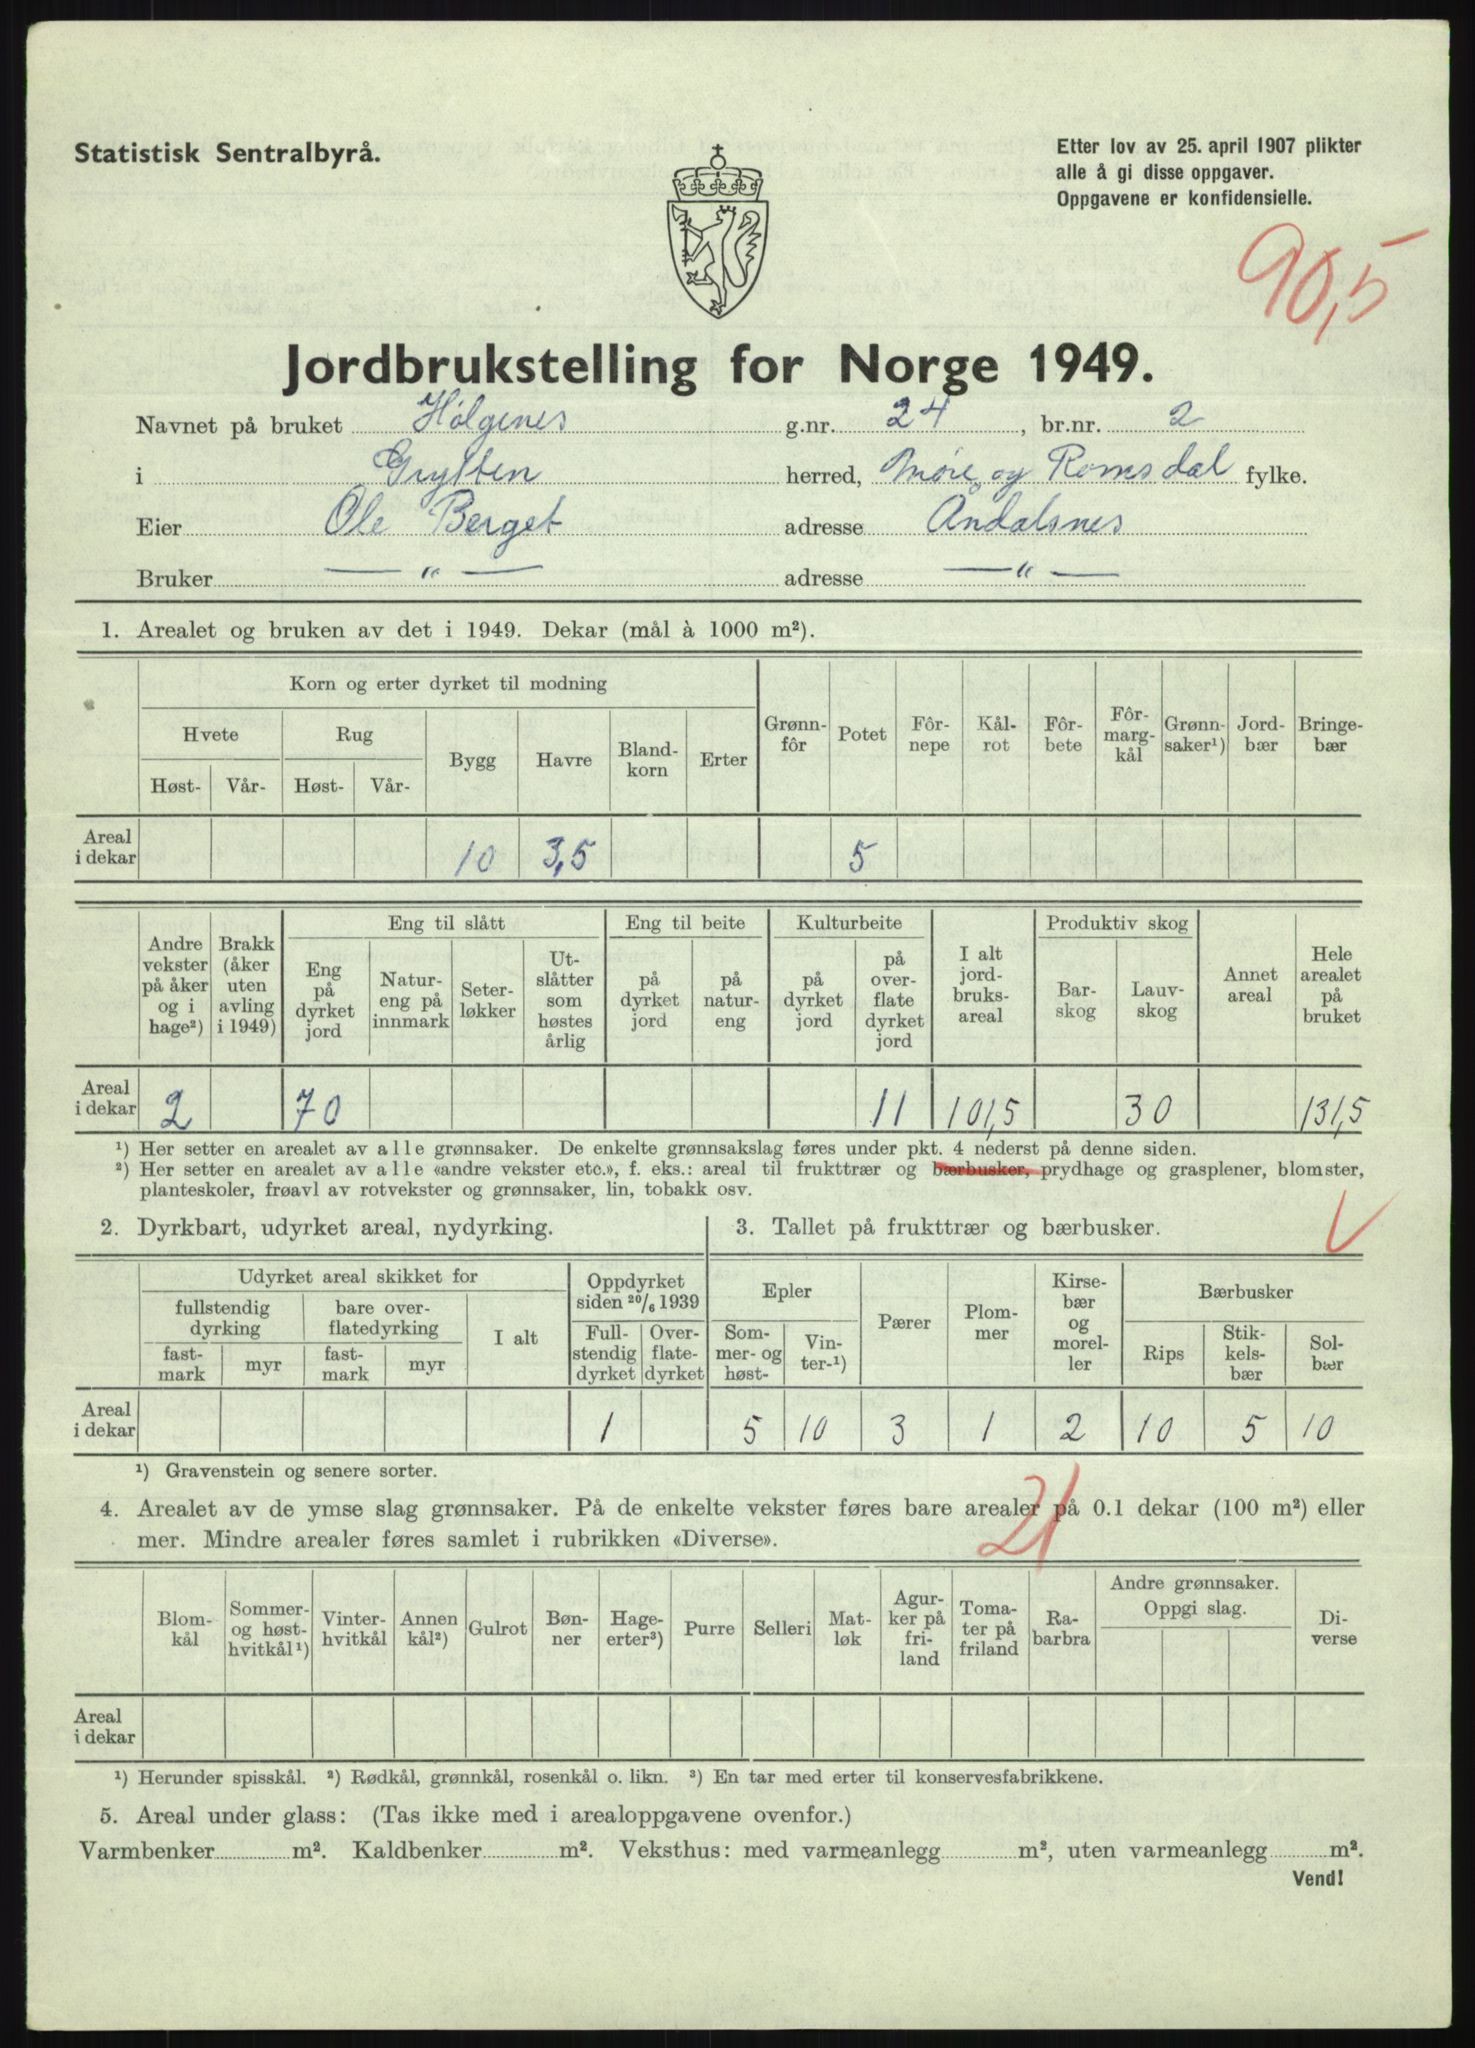 Statistisk Sentralbyrå.
Etter lov av 25. april 1907 plikter
alle å gi disse oppgaver.
Oppgavene er konfidensielle.
90,5
Jordbrukstelling for Norge 1949.
Navnet på bruket Hølgenes g.nr. 24, br.nr. 2
i Grytten herred, Møre og Romsdal fylke.
Eier Ole Berget adresse Åndalsnes
Bruker — " — adresse — " —
1. Arealet og bruken av det i 1949. Dekar (mål à 1000 m²).
Korn og erter dyrket til modning
Hvete Rug Bygg Havre Bland-korn Erter Grønn-fôr Potet Fôr-nepe Kål-rot Fôr-bete Fôr-marg-kål Grønn-saker¹) Jord-bær Bringe-bær
Høst- Vår- Høst- Vår-
Areal i dekar 10 3,5 5
Eng til slått Eng til beite Kulturbeite Produktiv skog
Andre vekster på åker og i hage²) Brakk (åker uten avling i 1949) Eng på dyrket jord Natur-eng på innmark Seter-løkker Ut-slåtter som høstes årlig på dyrket jord på natur-eng på dyrket jord på over-flate dyrket jord I alt jord-bruks-areal Bar-skog Lauv-skog Annet areal Hele arealet på bruket
Areal i dekar 2 70 11 101,5 30 131,5
¹) Her setter en arealet av alle grønnsaker. De enkelte grønnsakslag føres under pkt. 4 nederst på denne siden.
²) Her setter en arealet av alle «andre vekster etc.», f. eks.: areal til frukttrær og bærbusker, prydhage og grasplener, blomster,
planteskoler, frøavl av rotvekster og grønnsaker, lin, tobakk osv.
2. Dyrkbart, udyrket areal, nydyrking.
3. Tallet på frukttrær og bærbusker.
Udyrket areal skikket for Oppdyrket siden 20/6 1939 Epler Pærer Plom-mer Kirse-bær og morel-ler Bærbusker
fullstendig dyrking bare over-flatedyrking I alt Full-stendig dyrket Over-flate-dyrket Som-mer- og høst- Vin-ter-¹) Rips Stik-kels-bær Sol-bær
fast-mark myr fast-mark myr
Areal i dekar 1 5 10 3 1 2 10 5 10
¹) Gravenstein og senere sorter.
21
4. Arealet av de ymse slag grønnsaker. På de enkelte vekster føres bare arealer på 0.1 dekar (100 m²) eller
mer. Mindre arealer føres samlet i rubrikken «Diverse».
Blom-kål Sommer- og høst-hvitkål¹) Vinter-hvitkål Annen kål²) Gulrot Bøn-ner Hage-erter³) Purre Selleri Mat-løk Agur-ker på fri-land Toma-ter på friland Ra-barbra Andre grønnsaker. Oppgi slag. Di-verse
Areal i dekar
¹) Herunder spisskål. ²) Rødkål, grønnkål, rosenkål o. likn. ³) En tar med erter til konservesfabrikkene.
5. Areal under glass: (Tas ikke med i arealoppgavene ovenfor.)
Varmbenker m². Kaldbenker m². Veksthus: med varmeanlegg m², uten varmeanlegg m².
Vend!